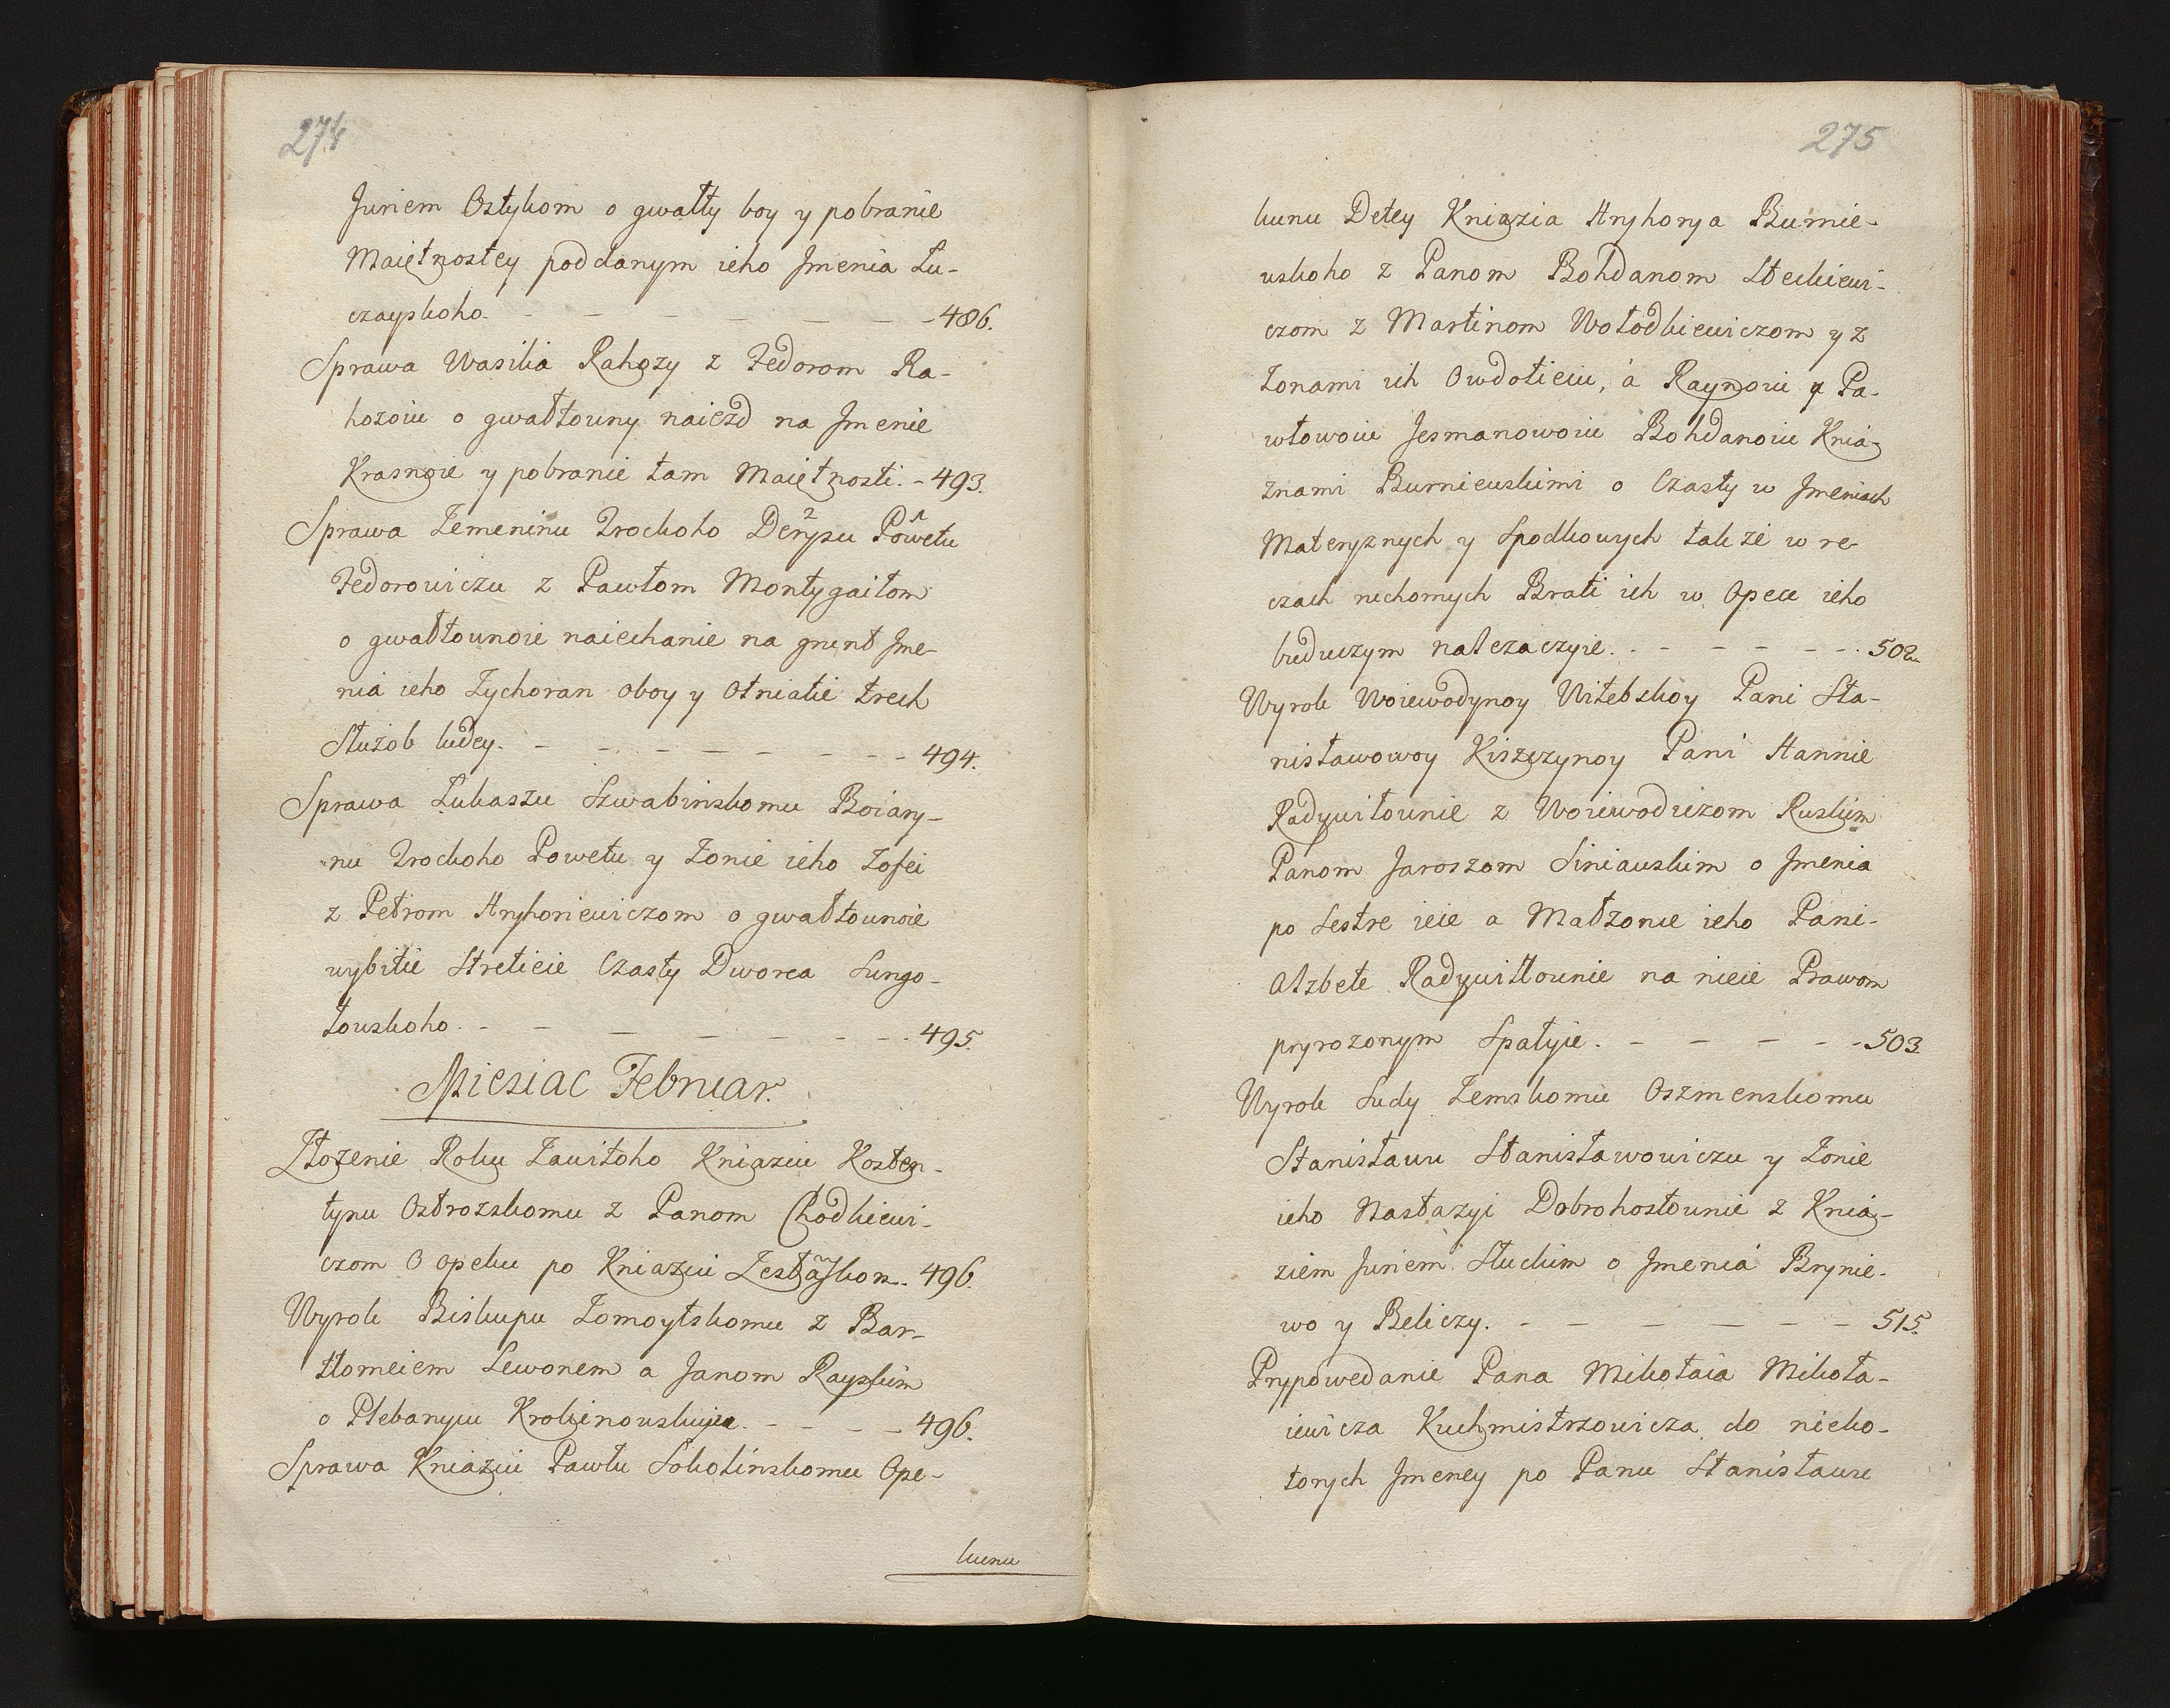 274
Juriem Ostykom o gwałty boy y pobranie
Maiętnostey poddanym ieho Jmenia Łu-
czayskoho. - - - - - - - 486.
Sprawa Wasilia Rahozy z Fedorom Ra-
hozoiu o gwałtowny naiezd na Jmenie
Krasnoie y pobranie tam Maiętnosti. - 493.
Sprawa Zemeninu Trockoho Denysu Powetu
Fedorowiczu z Pawłom Montygaiłom
o gwałtownoie naiechanie na grunt Jme-
nia ieho Żychoran oboy y Otniatie trech
Służob ludey. - - - - - - - 494.
Sprawa Łukaszu Szwabinskomu Boiary-
nu Trockoho Powetu y Żonie ieho Zofei
z Petrom Hryhoriewiczom o gwałtownoie
wybitie Streticie Czasty Dworca Sungo-
łowskoho. - - - - - - - 495.
Miesiac Februar.
Złożenie Roku Zawitoho Kniaziu Kosten-
tynu Ostrozskomu z Panom Chodkiewi-
czom O opeku po Kniaziu Żesławskom. 496.
Wyrok Biskupu Żomoytskomu z Bar-
tłomeiem Lewonem a Janom Rayskim
o Plebanyiu Krokinowskuiu. - - - - 496.
Sprawa Kniaziu Pawłu Sokolinskomu Ope-
kunu
275
kunu Detey Kniazia Hryhorya Burnie-
wskoho z Panom Bohdanom Steckiewi-
czom z Martinom Wołodkiewiczom y z
Żonami ich Owdotieiu, a Raynoiu y Pa-
włowoiu Jesmanowoiu Bohdanoiu Knia-
znami Burniewskimi o Czasty w Jmeniach
Materyznych y Spodkowych tak że w re-
czach ruchomych Brati ich w Opece ieho
buduczym nalezaczyie. - - - - - - 502.
Wyrok Woiewodynoy Witebskoy Pani Sta-
nisławowoy Kiszczynoy Pani Hannie
Radywiłownie z Woiewodiczom Ruskim
Panom Jaroszom Siniawskim o Jmenia
po Sestre ieie a Małzonce ieho Pani-
Alzbete Radywiłłownie na nieie Prawom
pryrozonym Spałyie. - - - - - 503
Wyrok Sudy Zemskomu Oszmenskomu
Stanisławu Stanisławowiczu y Żonie
ieho Nastazyi Dobrohostownie z Knia-
ziem Juriem Słuckim o Jmenia Brynie-
wo y Beliczy. - - - - - - 515.
Prypowedanie Pana Mikołaia Mikoła-
iewicza Kuchmistrzowicza do nieko-
torych Jmeney po Panu Stanisławu